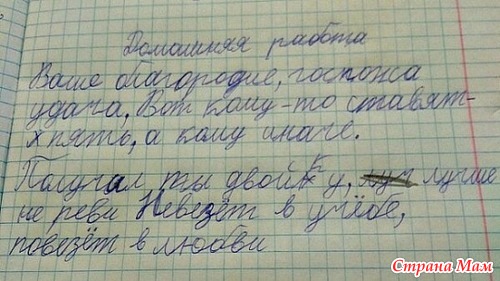 Домашняя работа
Ваше благородие, госпожа
удача, Вот кому-то ставят-
х пять, а кому иначе.
Получал ты двойку, лучше
не реви Невезёт в учёбе,
повезёт в любви
Страна Мам